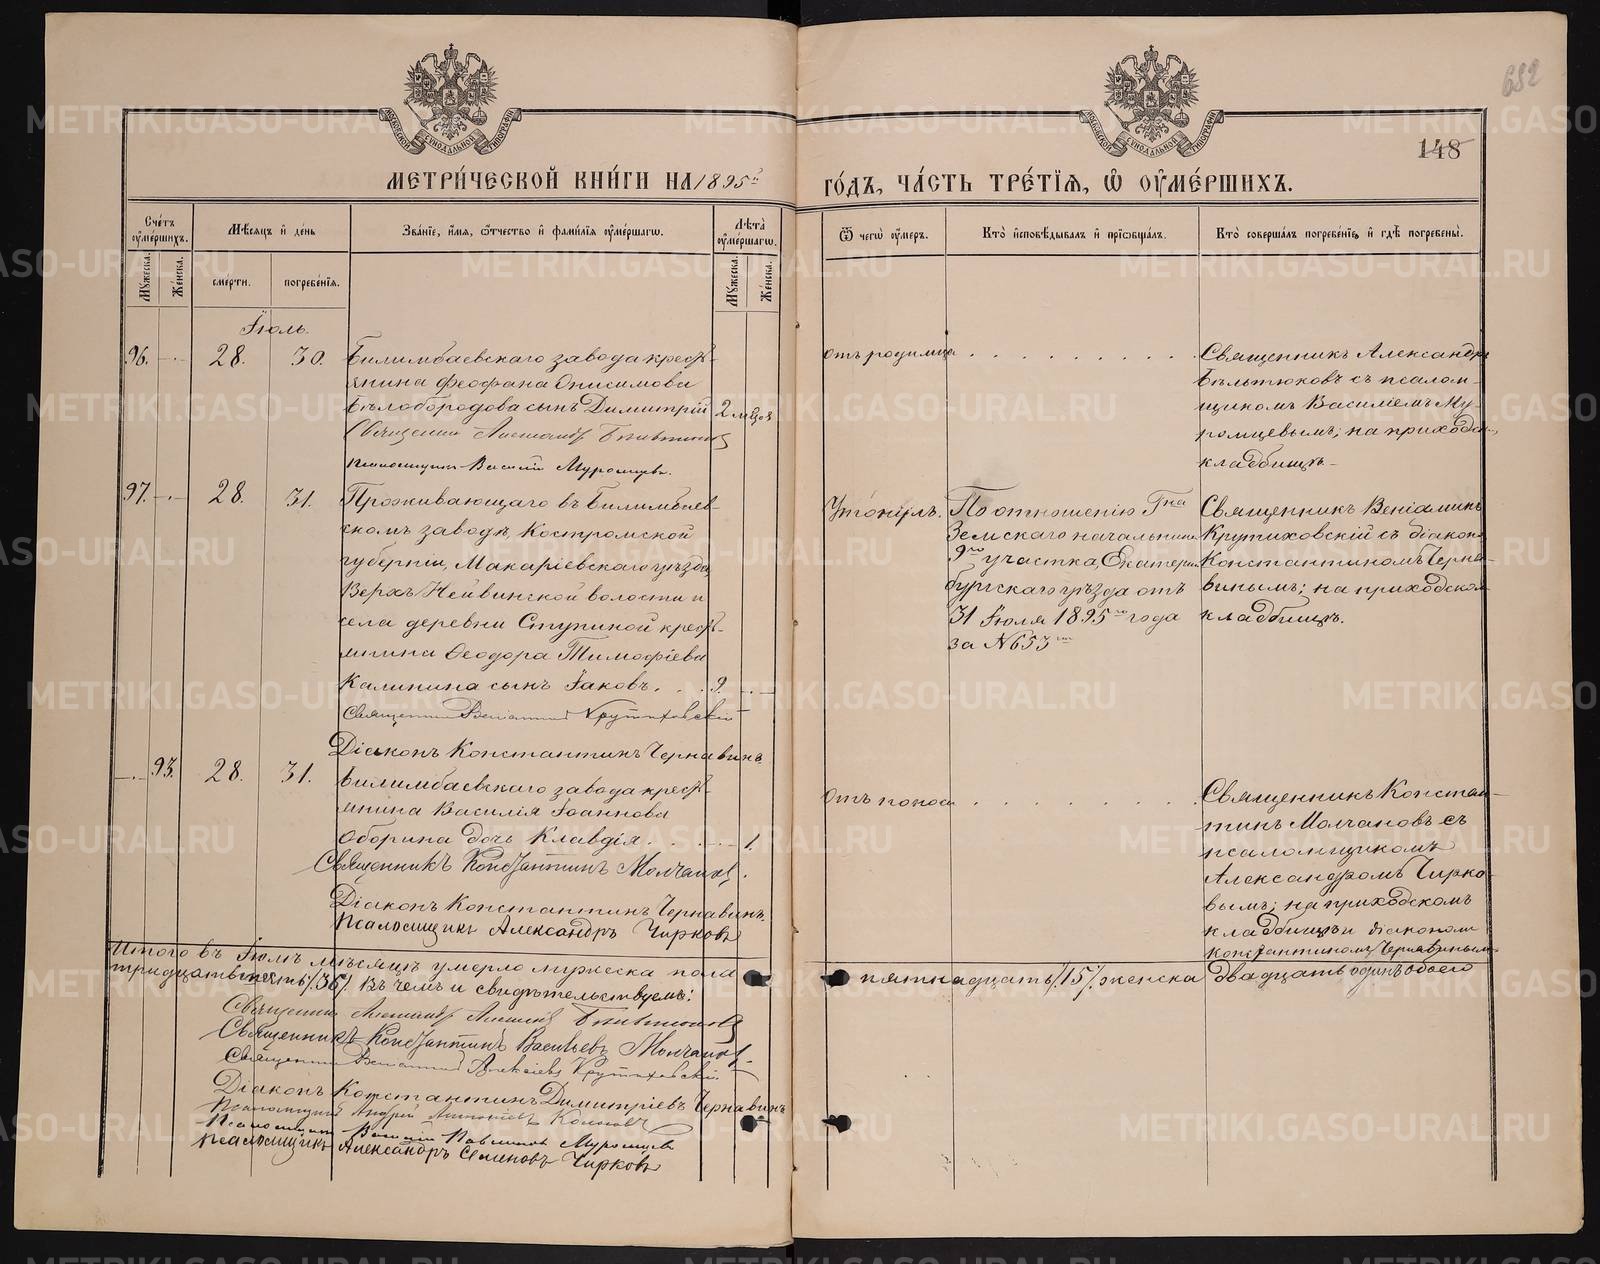 682
148
МЕТРИ́ЧЕСКОЙ КНИ́ГИ НА 1895й
ГО́ДЪ, ЧА́СТЬ ТРЕ́ТІЯ, Ѽ ОУ҆МЕ́РШИХЪ.
Сче́тъ оу҆ме́ршихъ.
Мѣ́сяцъ и҆ де́нь
Зва́ніе, и҆́мя, ѻ҆́тчество и҆ фами́лія оу҆ме́ршагѡ.
Лѣ́та оу҆ме́ршагѡ.
Ѿ чегѡ̀ оу҆́меръ.
Кто̀ и҆сповѣ́дывалъ и҆ пріѡбща́лъ.
Кто̀ соверша́лъ погребе́ніе, и҆ гдѣ̀ погребены̀.
Му́жеска.
Же́нска.
сме́рти.
погребе́нія.
Му́жеска.
Же́нска.
Іюль.
96. 28. 30.
Билимбаевскаго завода кресть-
янина Феофана Онисимова
Бѣлобородова сынъ Димитрій 2 мѣс
Священникъ Александръ Бѣльтюковъ
Псаломщикъ Василій Муромцевъ.
отъ родимца
Священникъ Александръ
Бѣльтюковъ съ псалом-
щикомъ Василіемъ Му-
ромцевымъ; на приходск.
кладбищѣ.
97. 28. 31.
Проживающаго въ Билимбаев-
скомъ заводѣ, Костромской
губерніи, Макаріевскаго уѣзда,
Верхъ Нейвинской волости и
села деревни Ступиной кресть-
янина Ѳеодора Тимофіева
Калинина сынъ Іаковъ. 9.
Священникъ Веніаминъ Крутиховскій
Діаконъ Константинъ Чернавинъ
Утонулъ.
По отношенію Гна
Земскаго начальника
9го участка, Екатерин
бургскаго уѣзда отъ
31 Іюля 1895го года
за № 653
Священникъ Веніаминъ
Крутиховскій съ діакон.
Константиномъ Черна-
винымъ; на приходском
кладбищѣ.
93. 28. 31.
Билимбаевскаго завода кресть-
янина Василія Іоаннова
Оборина дочь Клавдія. 1.
Священникъ Константинъ Молчановъ.
Діаконъ Константинъ Чернавинъ.
Псаломщикъ Александръ Чирковъ
Отъ поноса
Священникъ Констан-
тинъ Молчановъ съ
псаломщикомъ
Александромъ Чирко-
вымъ; на приходскомъ
кладбищѣ и діакономъ
Константиномъ Чернавинымъ
Итого въ Іюлѣ мѣсяцѣ умерло мужеска пола пятнадцать /15/ женска двадцать одинъ обоего
тридцать шесть /36/. Въ чемъ и свидѣтельствуемъ:
Священникъ Александръ Алексѣевъ Бѣльтюковъ
Священникъ Константинъ Васильевъ Молчановъ
Священникъ Веніаминъ Алексѣевъ Крутиховскій.
Діаконъ Константинъ Димитріевъ Чернавинъ
Псаломщикъ Андрей
Псаломщикъ Василій Павлиновъ Муромцевъ
Псаломщикъ Александръ Семеновъ Чирковъ
METRIKI.GASO-URAL.RU